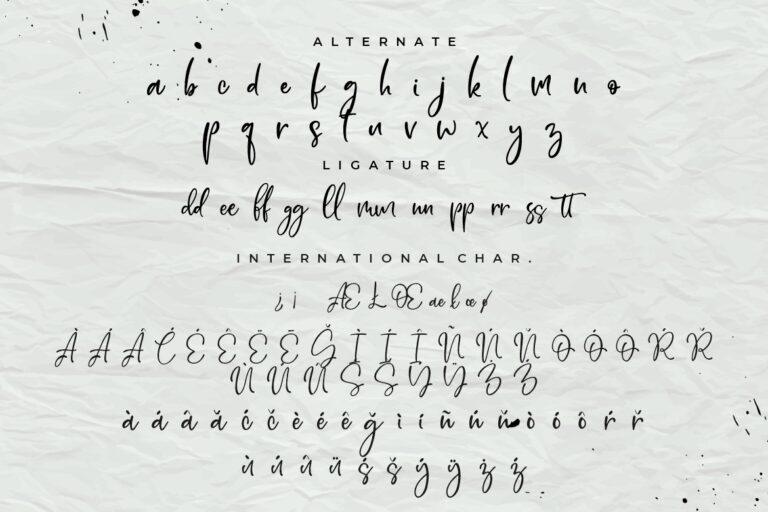 ALTERNATE
a b c d e f g h i j k l m n o
p q r s t u v w x y z
LIGATURE
dd ee ff gg ll mm nn pp rr ss tt
INTERNATIONAL CHAR.
¿ ¡ Æ Ł Œ æ ł œ ø
À Á Â Ć É Ê Ë Ē Ğ Ì Í Î Ñ Ń Ň Ò Ó Ô Ŕ Ř
Ù Û Ü Ś Š Ý Ÿ Ż Ž
à á â ă ć č è é ê ğ ì í ñ ń ň ò ó ô ŕ ř
ù ú û ü ś š ý ÿ ż ź